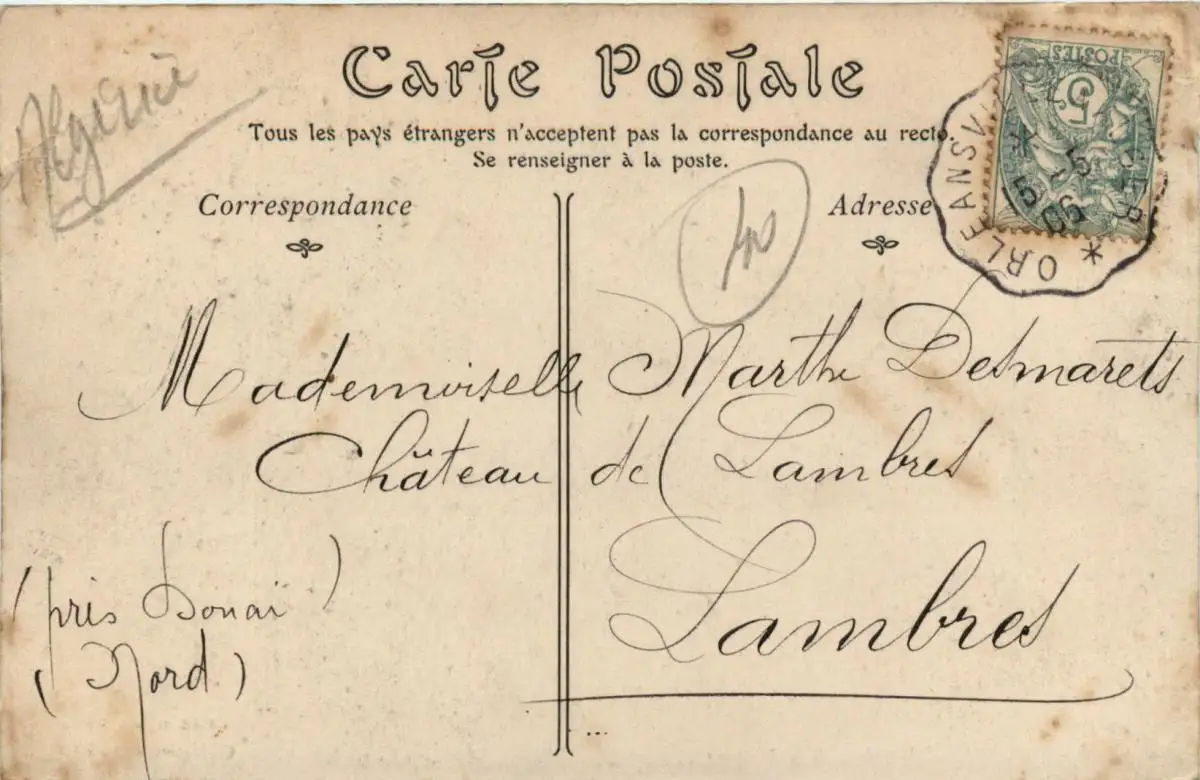 Algérie
Carte Postale
Tous les pays étrangers n'acceptent pas la correspondance au recto.
Se renseigner à la poste.
Correspondance
Adresse
POSTES
5
ORLEANSV
5
5
06
Mademoiselle Marthe Desmarets
Château de Lambres
Lambres
(près Douai)
(Nord)